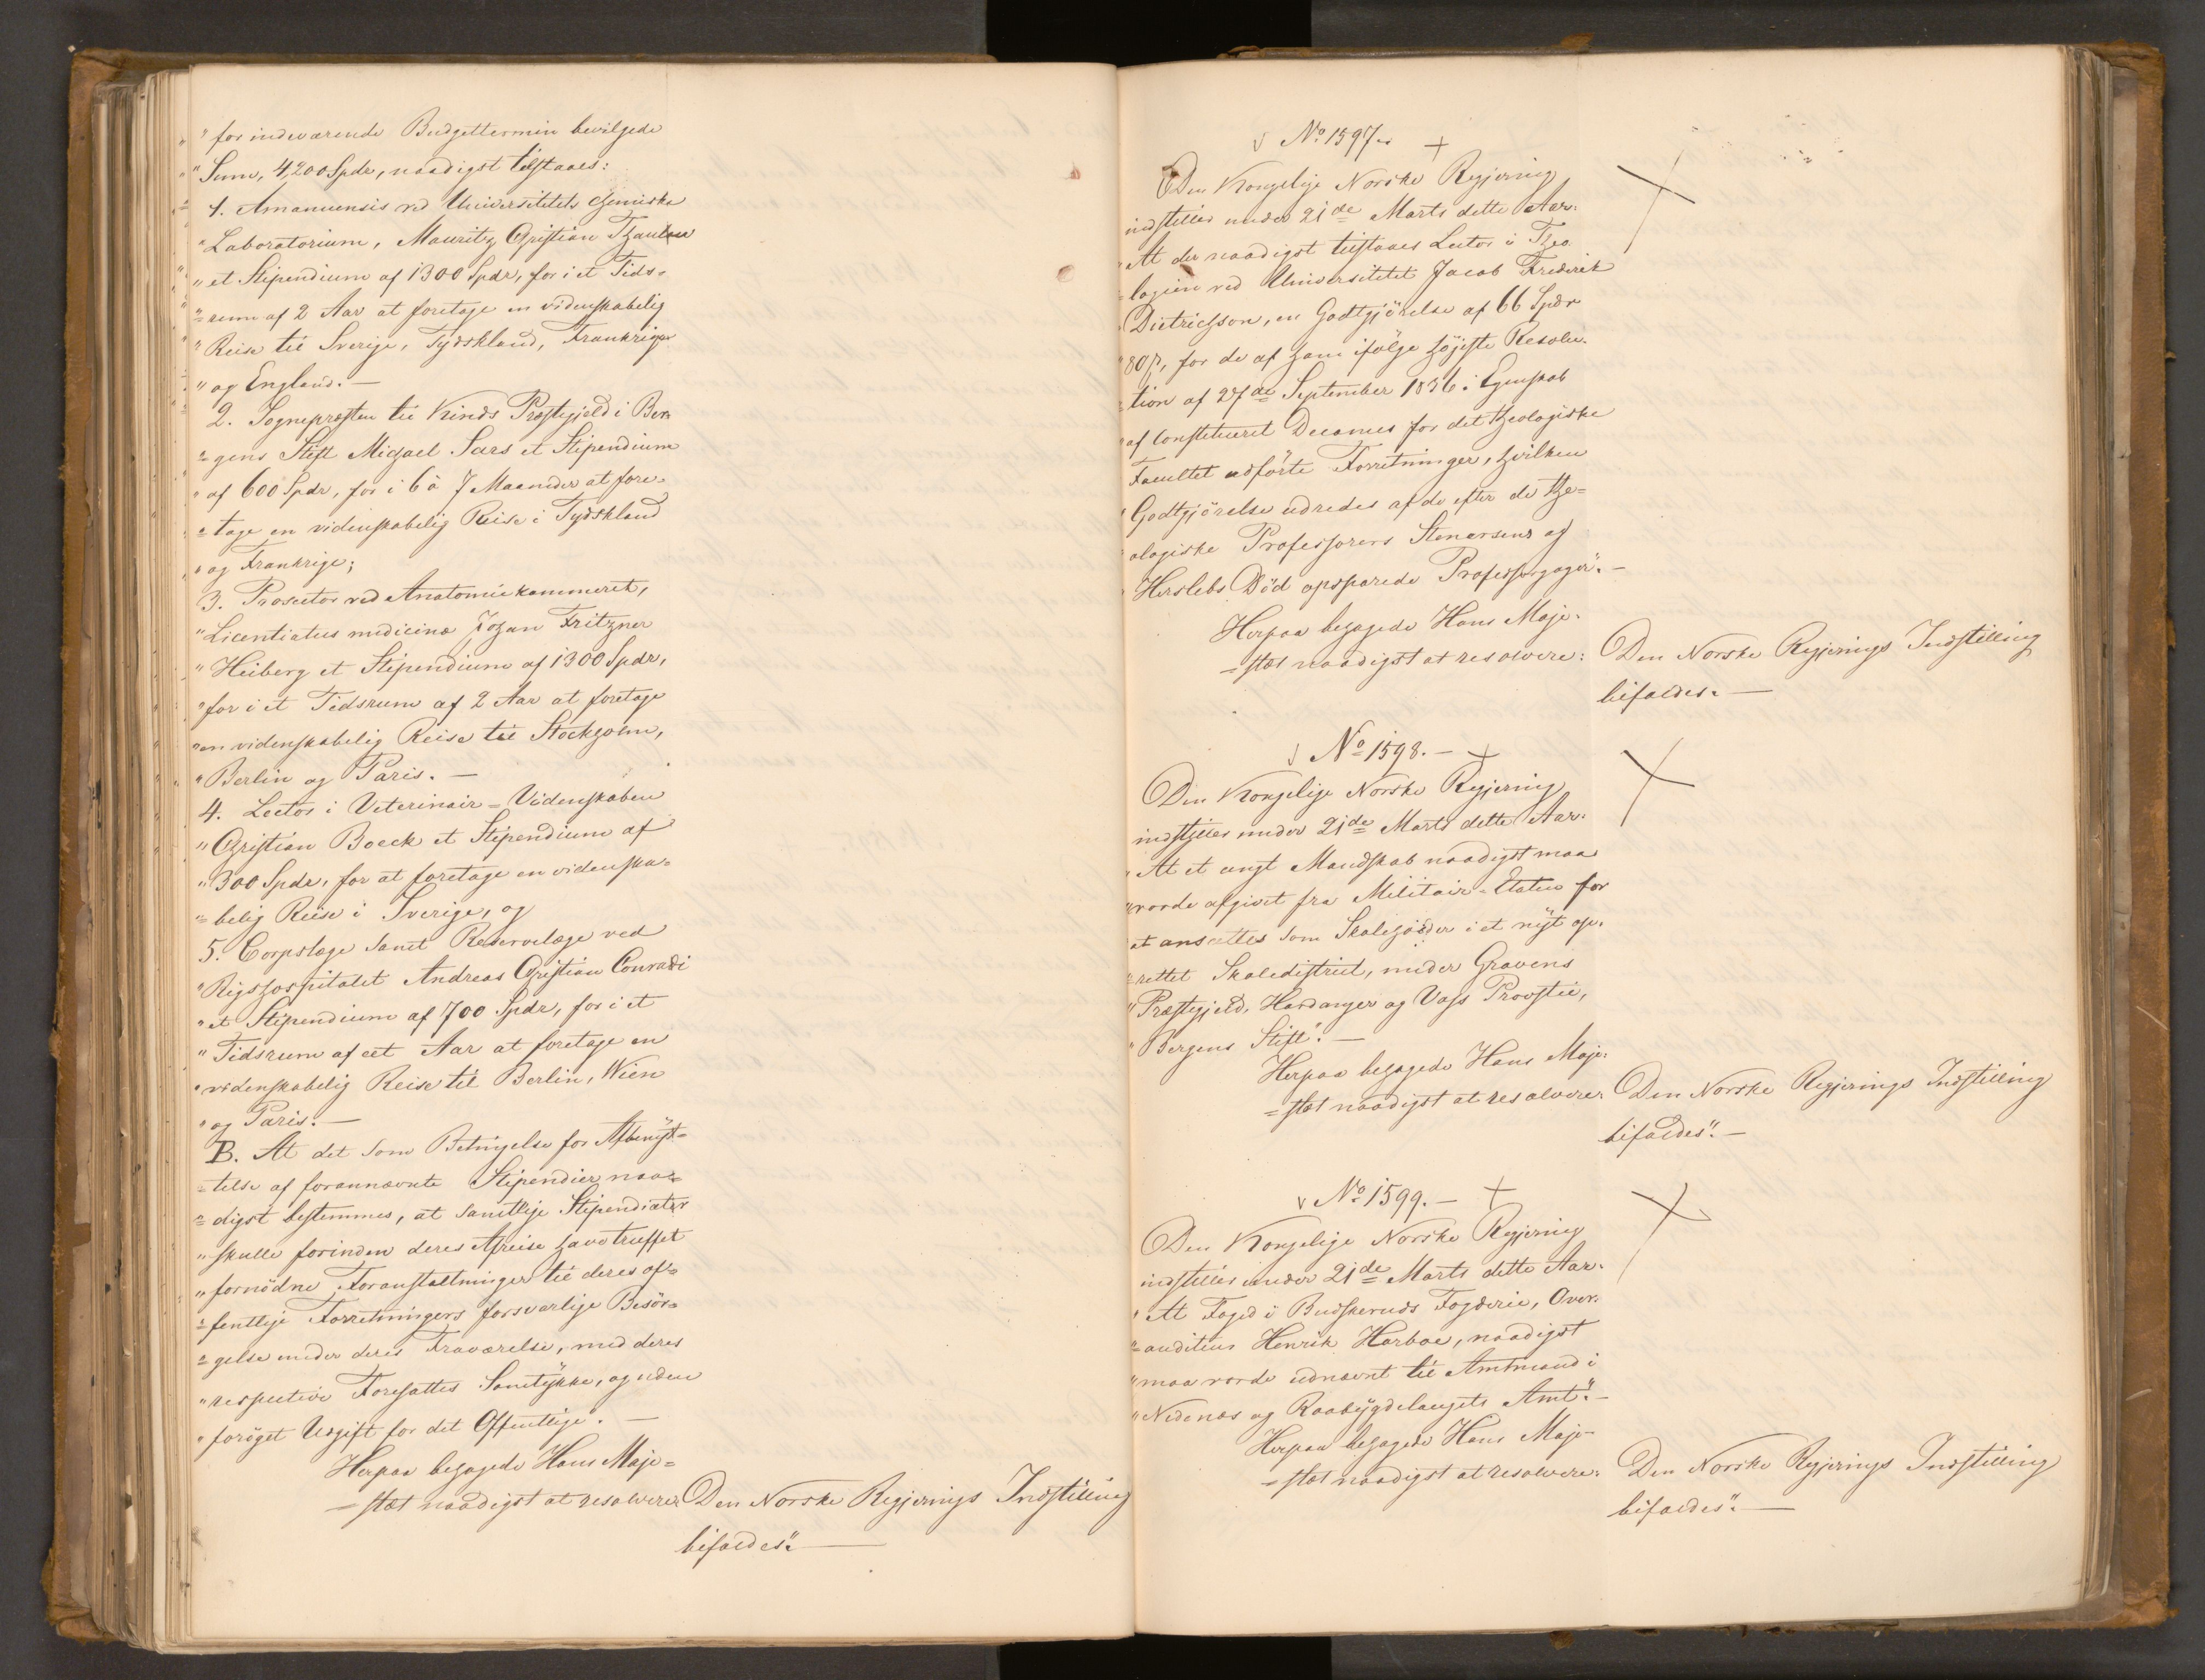 "for indeværende Budgettermin bevilgede
"Sum, 4,200 Spdr, naadigst tilstaaes:
1. Amanuensis ved Universitetets chemiske
"Laboratorium, Mauritz Christian Thaulow
"et Stipendium af 1300 Spdr, for i et Tids-
"=rum af 2 Aar at foretage en videnskabelig
"Reise til Sverige, Tydskland, Frankrige
"og England.—
2. Sognepræsten til Kinds Præstegjeld i Ber-
"=gens Stift Michael Sars et Stipendium
"af 600 Spdr, for i 6 à 7 Maaneder at fore-
"=tage en videnskabelig Reise i Tydskland
"og Frankrige;
3. Prosector ved Anatomiekammeret,
"Licentiatus medicinæ Johan Fritzner
"Heiberg et Stipendium af 1300 Spdr,
"for i et Tidsrum af 2 Aar at foretage
"en videnskabelig Reise til Stockholm,
"Berlin og Paris.—
4. Lector i Veterinair-Videnskaben
"Christian Boeck et Stipendium af
"300 Spdr, for at foretage en videnska-
"=belig Reise i Sverige, og
5. Corpslæge samt Reservelæge ved
"Rigshospitalet Andreas Christian Conradi
"et Stipendium af 700 Spdr, for i et
"Tidsrum af eet Aar at foretage en
"videnskabelig Reise til Berlin, Wien
"og Paris.—
B. At det som Betingelse for Afbenyt-
"=telse af forannævnte Stipendier naa-
"=digst bestemmes, at samtlige Stipendiater
"skulle forinden deres Afreise have truffet
"fornødne Foranstaltninger til deres of-
"=fentlige Forretningers forsvarlige Besør-
"=gelse under deres Fraværelse, med deres
"respective Foresattes Samtykke, og uden
"forøget Udgift for det Offentlige".—
Herpaa behagede Hans Maje=
=stæt naadigst at resolvere: Den Norske Regjerings Indstilling
bifaldes".—
No 1597.
Den Kongelige Norske Regjering
indstiller under 21de Marts dette Aar:
"At der naadigst tilstaaes Lector i Theo-
"=logien ved Universitetet Jacob Frederik
"Dietrichson, en Godtgjørelse af 66 Spdr
"80 ß, for de af ham ifølge høieste Resolu-
"=tion af 27de September 1836 i Egenskab
"af constitueret Decanus for det theologiske
"Facultet udførte Forretninger, hvilken
"Godtgjørelse udredes af de efter de the=
"ologiske Professorers Stenersens og
"Herslebs Død opsparede Professorgager".—
Herpaa behagede Hans Maje-
=stæt naadigst at resolvere: Den Norske Regjerings Indstilling
bifaldes.—
No 1598.—
Den Kongelige Norske Regjering
indstiller under 21de Marts dette Aar:
"At et ungt Mandskab naadigst maa
"vorde afgivet fra Militair-Etaten for
at ansættes som Skoleholder i et nyt op-
"=rettet Skoledistrict, under Gravens
"Præstegjeld, Hardanger og Voss Provstie,
"Bergens Stift".—
Herpaa behagede Hans Maje-
=stæt naadigst at resolvere: Den Norske Regjerings Indstilling
bifaldes".—
No 1599.—
Den Kongelige Norske Regjering
indstiller under 21de Marts dette Aar:
"At Foged i Buskeruds Fogderie, Over-
"=auditeur Henrik Harboe, naadigst
"maa vorde udnævnt til Amtmand i
"Nedenæs og Raabygdelaugets Amt".—
Herpaa behagede Hans Maje-
=stæt naadigst at resolvere: Den Norske Regjerings Indstilling
bifaldes".—